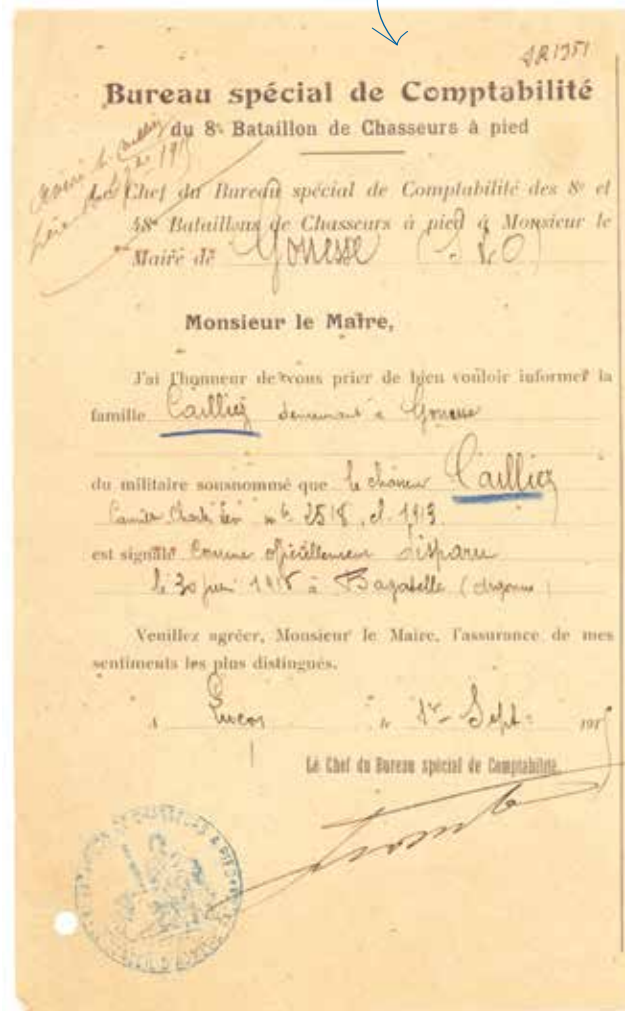 Bureau spécial de Comptabilité
du 8e Bataillon de Chasseurs à pied
Le Chef du Bureau spécial de Comptabilité des 8e et
48e Bataillons de Chasseurs à pied à Monsieur le
Maire de Gonesse (S & O)
Monsieur le Maire,
J'ai l'honneur de vous prier de bien vouloir informer la
famille Cailliez demeurant à Gonesse
du militaire sousnommé que le Cailliez
Charles Léon 2518, cl. 1913
est signalé comme officiellement disparu
le 30 juin 1915 à Bagatelle (Argonne)
Veuillez agréer, Monsieur le Maire, l'assurance de mes
sentiments les plus distingués.
le 1er Sept. 1915
Le Chef du Bureau spécial de Comptabilité,